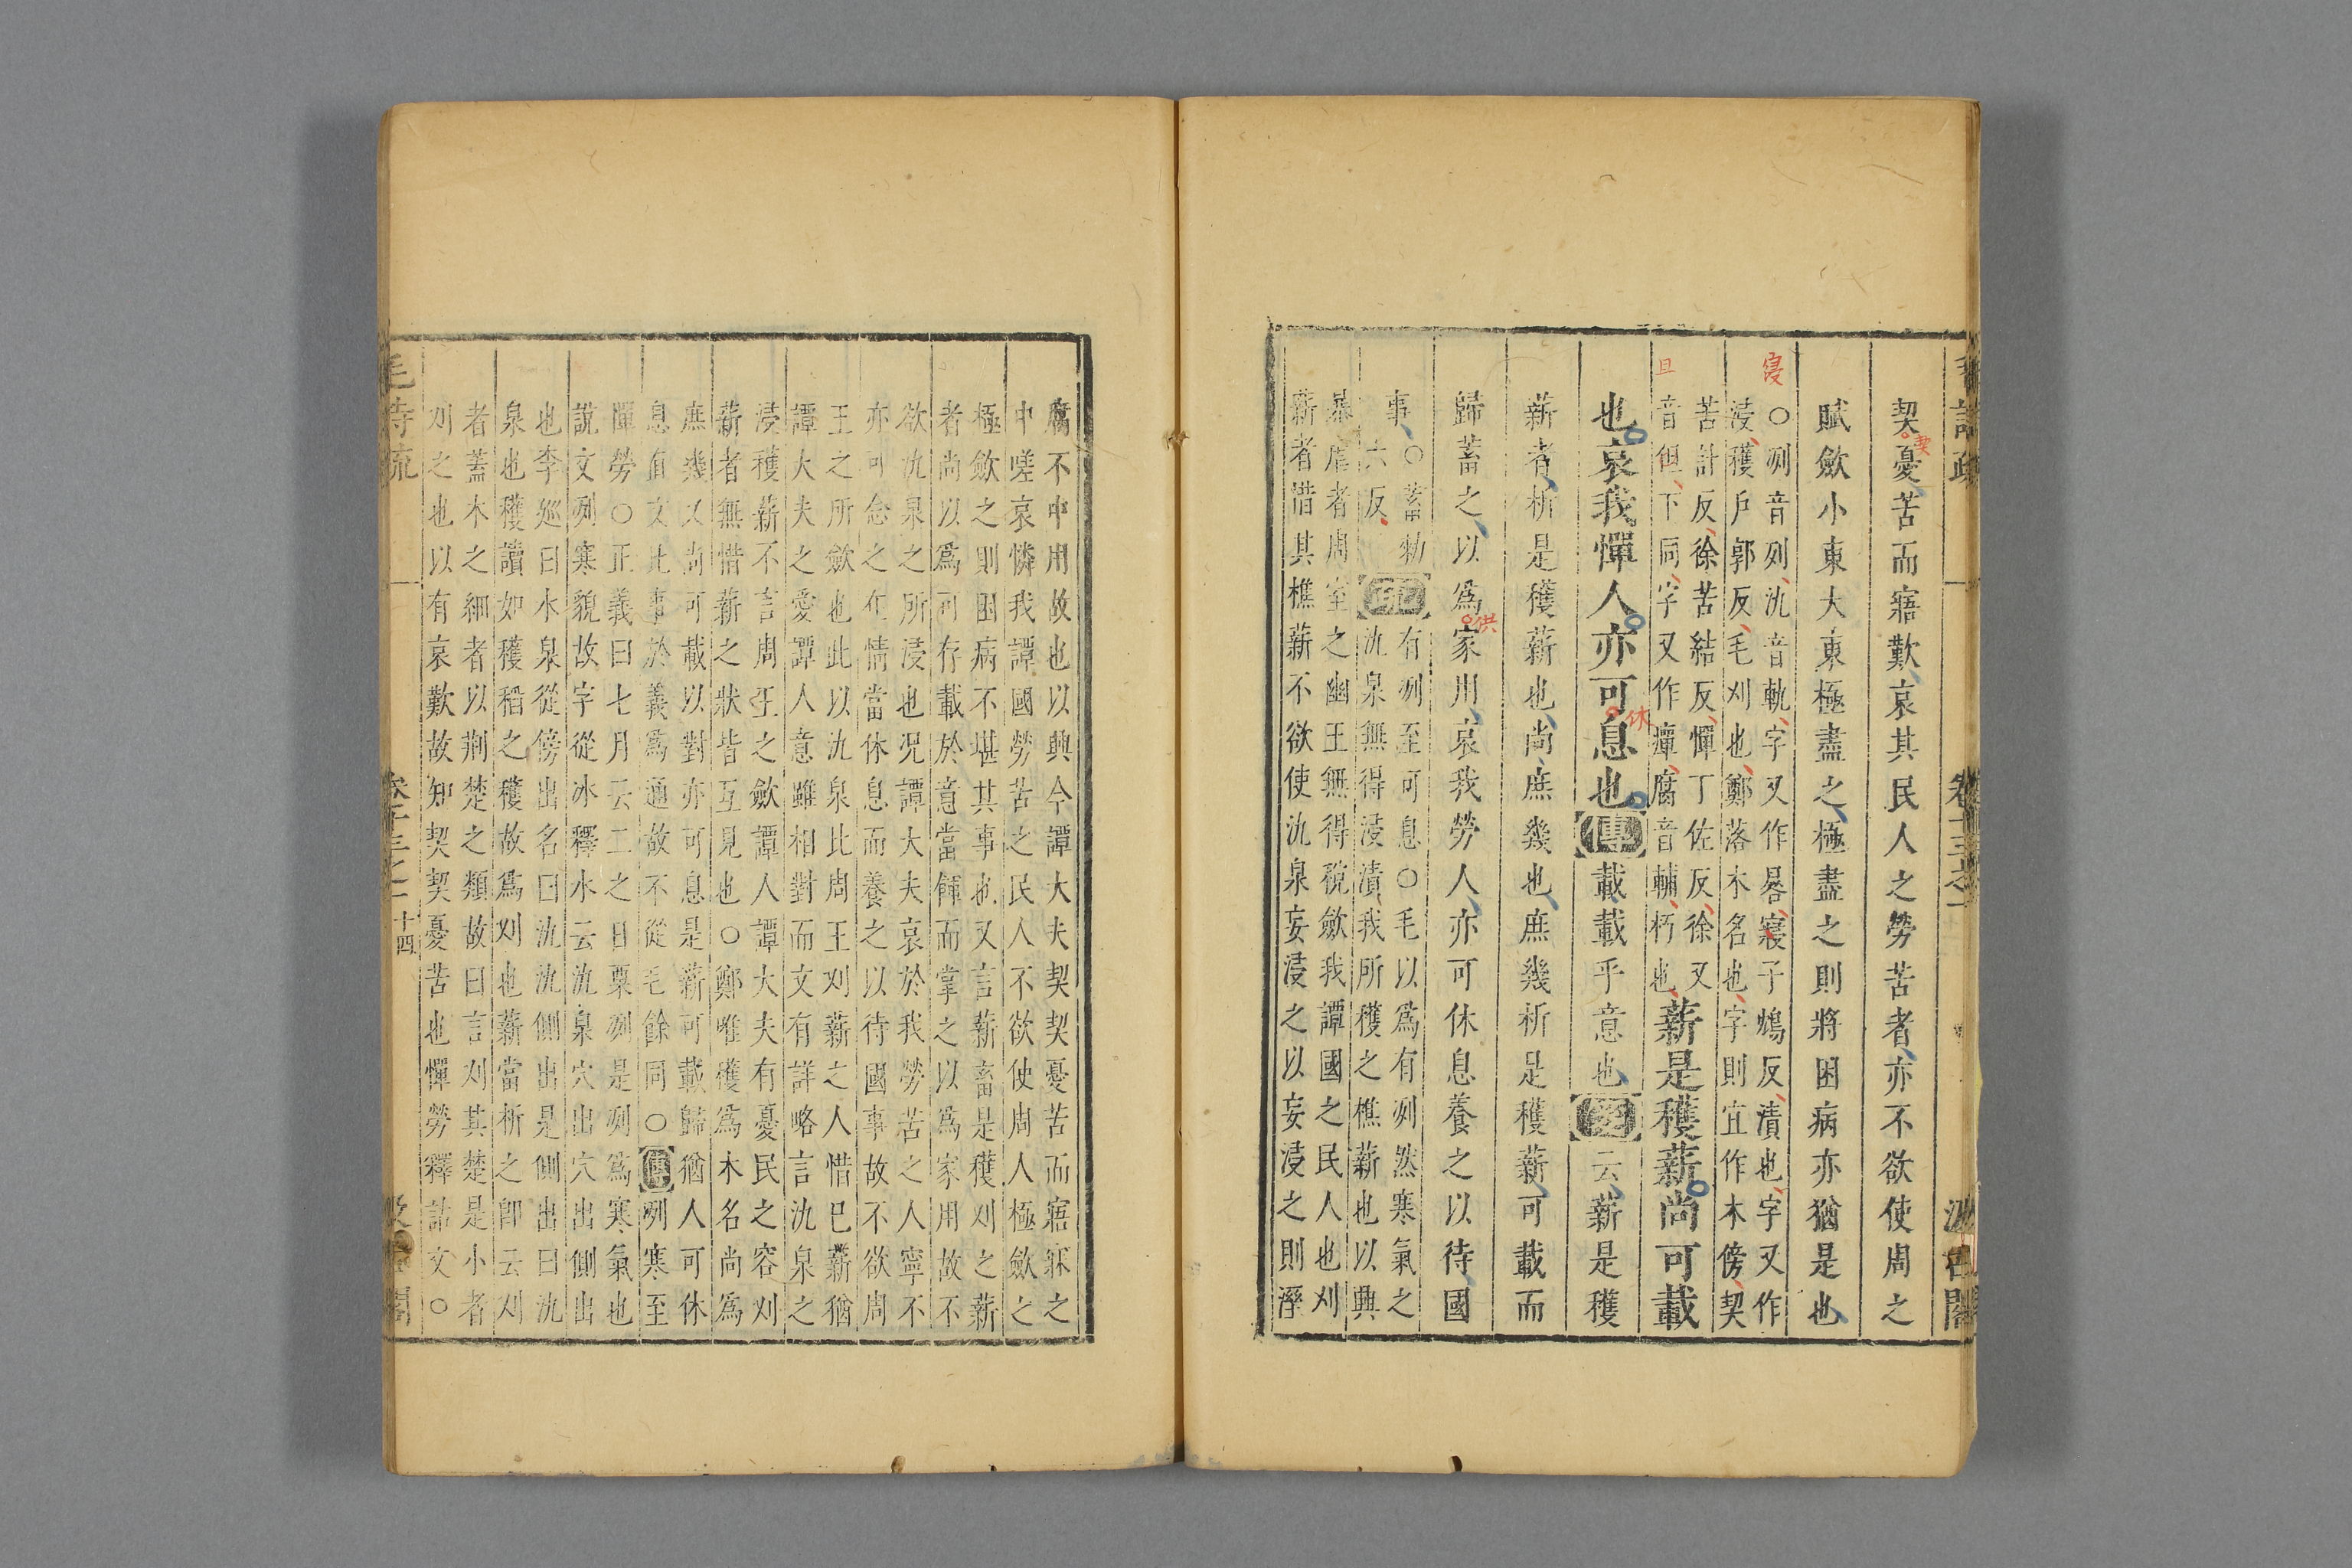 契憂苦而寤歎哀其民人之勞苦者亦不欲使周之
賦斂小東大東極盡之極盡之則將困病亦猶是也
○冽音列氿音軌字又作晷寖子鴆反漬也字又作
浸穫戶郭反毛刈也鄭落木名也字則宜作木傍契
苦計反徐苦結反憚丁佐反徐又
音但下同字又作癉腐音輔朽也
薪是穫薪尚可載
也哀我憚人亦可息也傳載載乎意也箋云薪是穫
薪者析是穫薪也尚庶幾也庶幾析是穫薪可載而
歸蓄之以為家用哀我勞人亦可休息養之以待國
事○蓄勑
六反
疏
有冽至可息○毛以為有冽然寒氣之
氿泉無得浸漬我所穫之樵薪也以興
暴虐者周室之幽王無得稅斂我譚國之民人也刈
薪者惜其樵薪不欲使氿泉妄浸之以妄浸之則溼
腐不中用故也以興今譚大夫契契憂苦而寤寐之
中嗟哀憐我譚國勞苦之民人不欲使周人極斂之
極斂之則困病不堪其事也又言薪畜是穫刈之薪
者尚以為可存載於意當餫而掌之以為家用故不
欲氿泉之所浸也況譚大夫哀於我勞苦之人寧不
亦可念之在情當休息而養之以待國事故不欲周
王之所斂也此以氿泉比周王刈薪之人惜巳薪猶
譚大夫之愛譚人意雖相對而文有詳略言氿泉之
浸穫薪不言周王之斂譚人譚大夫有憂民之容刈
薪者無惜薪之狀皆互見也○鄭唯穫為木名尚為
庶幾又尚可載以對亦可息是薪可載歸猶人可休
息直文比事於義為通故不從毛餘同○傳冽寒至
憚勞○正義曰七月云二之日栗冽是冽為寒氣也
說文冽寒貌故字從冰釋水云氿泉穴出穴出側出
也李巡曰水泉從傍出名曰氿氿側出是側出曰氿
泉也穫讀如穫稻之穫故為刈也薪當析之卽云刈
者蓋木之細者以荆楚之類故曰言刈其楚是小者
刈之也以有哀歎故知契契憂苦也憚勞釋詁文○